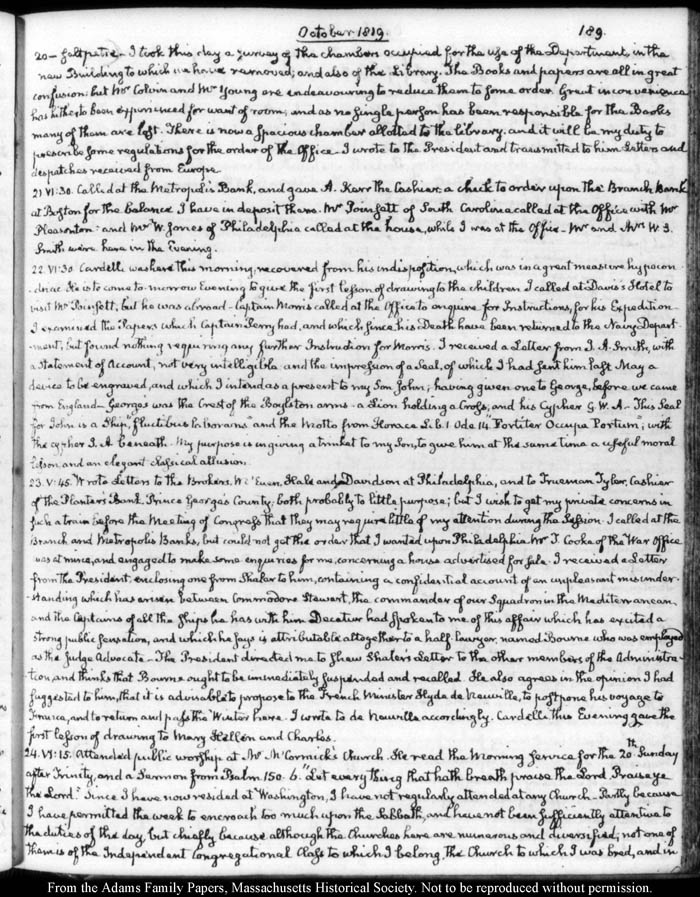 October 1819.
189.
20 — Saltpetre — I took this day a survey of the chambers occupied for the use of the Department, in the
new Building to which we have removed, and also of the Library. The Books and papers are all in great
confusion: but Mr Colvin and Mr Young are endeavouring to reduce them to some order. Great inconvenience
has hitherto been experienced for want of room; and as no single person has been responsible for the Books
many of them are lost. There is now a spacious chamber allotted to the library, and it will be my duty to
prescribe some regulations for the order of the Office. I wrote to the President and transmitted to him Letters and
despatches received from Europe.
21 VI:30. Called at the Metropolis Bank, and gave A. Kerr the Cashier, a check to order upon the Branch Bank
at Boston for the balance I have in deposit there. Mr Poinsett of South Carolina called at the Office with Mr
Pleasonton and Mr W. Jones of Philadelphia called at the house, while I was at the Office — Mr and Mrs W. S.
Smith were here in the Evening.
22. VI:30 Cardelli was here this morning, recovered from his indisposition, which was in a great measure hypocon
driac. He is to come to-morrow Evening to give the first lesson of drawing to the children I called at Davis's Hotel to
visit Mr Poinsett; but he was abroad — Captain Morris called at the Office to enquire for Instructions, for his Expedition —
I examined the Papers which Captain Perry had, and which since his Death have been returned to the Navy Depart-
ment; but found nothing requiring any further Instruction for Morris. I received a Letter from J. A. Smith, with
a Statement of Account, not very intelligible and the impression of a Seal, of which I had sent him last May a
device to be engraved, and which I intend as a present to my Son John; having given one to George, before we came
from England — George's was the Crest of the Boylston arms — a Lion holding a Cross, and his Cypher G. W. A. — This Seal
for John is a Ship, fluctibus laborans and the Motto from Horace Lib. 1 Ode 14 "Fortiter Occupa Portum", with
the cypher J. A beneath. My purpose is in giving a trinket to my Son, to give him at the same time a useful moral
lesson, and an elegant classical allusion.
23. V:45. Wrote Letters to the Brokers, Mc'Euen, Hale and Davidson at Philadelphia, and to Trueman Tyler, Cashier
of the Planters Bank, Prince George's County; both probably to little purpose; but I wish to get my private concerns in
such a train before the Meeting of Congress that they may require little of my attention during the Session. I called at the
Branch and Metropolis Banks, but could not get the order that I wanted upon Philadelphia. Mr T. Cooke of the War Office
was at mine, and engaged to make some enquiries for me, concerning a house advertised for Sale. I received a Letter
from the President, enclosing one from Shaler to him, containing a confidential account of an unpleasant misunder-
standing which has arisen between Commodore Stewart, the commander of our Squadron in the Mediterranean,
and the Captains of all the Ships he has with him Decatur had spoken to me of this affair which has excited a
strong public sensation, and which he says is attributable altogether to a half-lawyer, named Bourne who was employed
as the Judge Advocate — The President directed me to shew Shaler's Letter to the other members of the Administra-
tion, and thinks that Bourne ought to be immediately suspended and recalled. He also agrees in the opinion I had
suggested to him, that it is advisable to propose to the French Minister Hyde de Neuville, to postpone his voyage to
France, and to return and pass the Winter here. I wrote to de Neuville accordingly. Cardelli this Evening gave the
first lesson of drawing to Mary Hellen and Charles.
24. VI:15. Attended public worship at Mr McCormick's Church. He read the Morning Service for the 20th Sunday
after Trinity, and a Sermon from Psalm 150. 6. "Let every thing that hath breath praise the Lord. Praise ye
the Lord." Since I have now resided at Washington, I have not regularly attended at any Church — Partly because
I have permitted the week to encroach too much upon the Sabbath, and have not been sufficiently attentive to
the duties of the day, but chiefly because although the Churches here are numerous and diversified, not one of
them is of the Independent Congregational Class to which I belong, the Church to which I was bred, and in
From the Adams Family Papers, Massachusetts Historical Society. Not to be reproduced without permission.